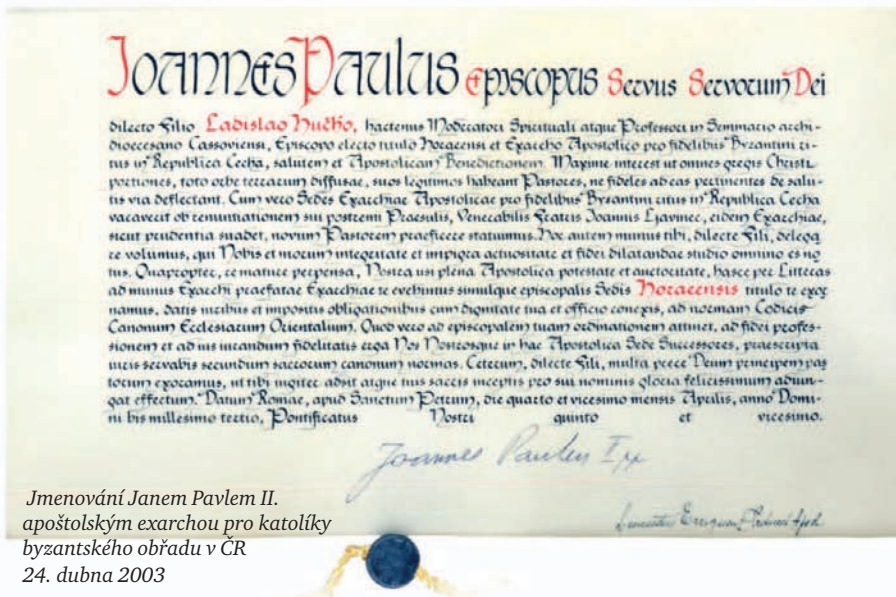 JOANNES PAULUS EPISCOPUS Servus Servorum Dei
dilecto Filio Ladislao Hučko, hactenus Moderatori Spirituali atque Professori in Seminario archi-
dioecesano Cassoviensi, Episcopo electo titulo Horaeensi et Exarcho Apostolico pro fidelibus Byzantini ri-
tus in Republica Cecha, salutem et Apostolicam Benedictionem. Maxime interest ut omnes gregis Christi
portiones, toto orbe terrarum diffusae, suos legitimos habeant Pastores, ne fideles ad eas pertinentes de salu-
tis via deflectant. Cum vero Sedes Exarchiae Apostolicae pro fidelibus Byzantini ritus in Republica Cecha
vacaverit ob renuntiationem sui postremi Praesulis, Venerabilis Fratris Joannis Ljavinec, eidem Exarchiae,
sicut prudentia suadet, novum Pastorem praeficere statuimus. Hoc autem munus tibi, dilecte Fili, delega
re volumus, qui Nobis et morum integritate et impigra actuositate et fidei dilatandae studio omnino es no
tus. Quapropter, re mature perpensa, Nostra usi plena Apostolica potestate et auctoritate, hasce per Litteras
ad munus Exarchi praefatae Exarchiae te evehimus simulque episcopalis Sedis Horaeensis titulo te exor
namus, datis iuribus et impositis obligationibus cum dignitate tua et officio conexis, ad normam Codicis
Canonum Ecclesiarum Orientalium. Quod vero ad episcopalem tuam ordinationem attinet, ad fidei profes-
sionem et ad ius iurandum fidelitatis erga Nos Nostrosque in hac Apostolica Sede Successores, praescripta
iuris servabis secundum sacrorum canonum normas. Ceterum, dilecte Fili, multa prece Deum principem pas
torum exoramus, ut tibi iugiter adsit atque tuis sacris inceptis pro sui nominis gloria felicissimum adiun-
gat effectum. Datum Romae, apud Sanctum Petrum, die quarto et vicesimo mensis Aprilis, anno Domi-
ni bis millesimo tertio, Pontificatus Nostri quinto et vicesimo.
Joannes Paulus II pp
Jmenování Janem Pavlem II.
apoštolským exarchou pro katolíky
byzantského obřadu v ČR
24. dubna 2003